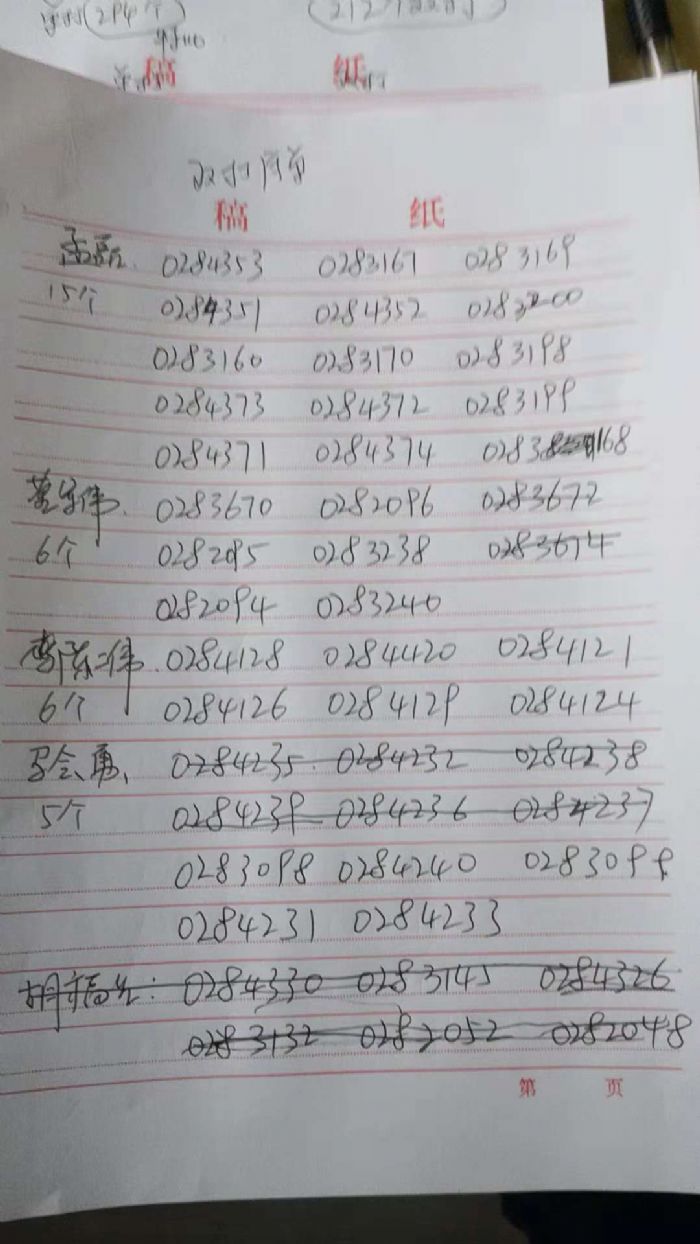 (294个)
稿 纸
稿 纸
0284353 0283167 0283169
15个 0284351 0284352 0283200
0283160 0283170 0283198
0284373 0284372 0283199
0284371 0284374 0283168
0283670 0282096 0283672
6个 0282095 0283238 0283674
0282094 0283240
伟 0284128 0284420 0284121
6个 0284126 0284129 0284124
马会勇 0284235 0284232 0284238
5个 0284239 0284236 0284237
0283098 0284240 0283099
0284231 0284233
胡福生: 0284330 0283145 0284326
0283132 0282052 0282048
第 页